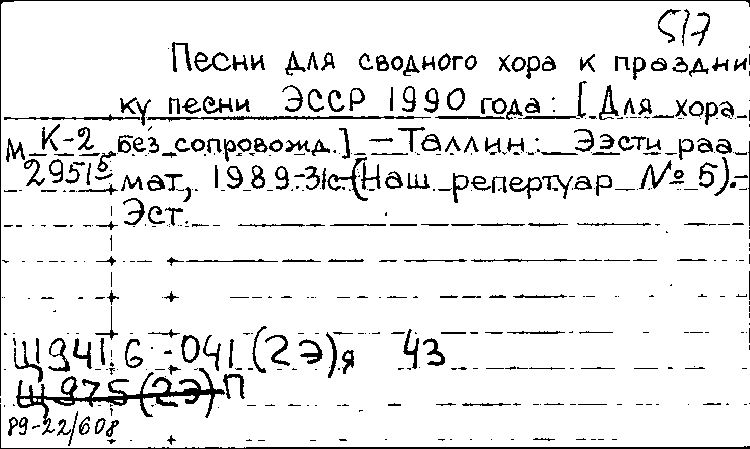 517
Песни для сводного хора к праздни
ку песни ЭССР 1990 года: [Для хора
М К-2 без сопровожд.] – Таллин: Ээсти раа
29515 мат, 1989-31с-(Наш репертуар № 5).-
Эст.
Щ941.6-041(2Э)я 43
Щ975(2Э)П
89-22/608